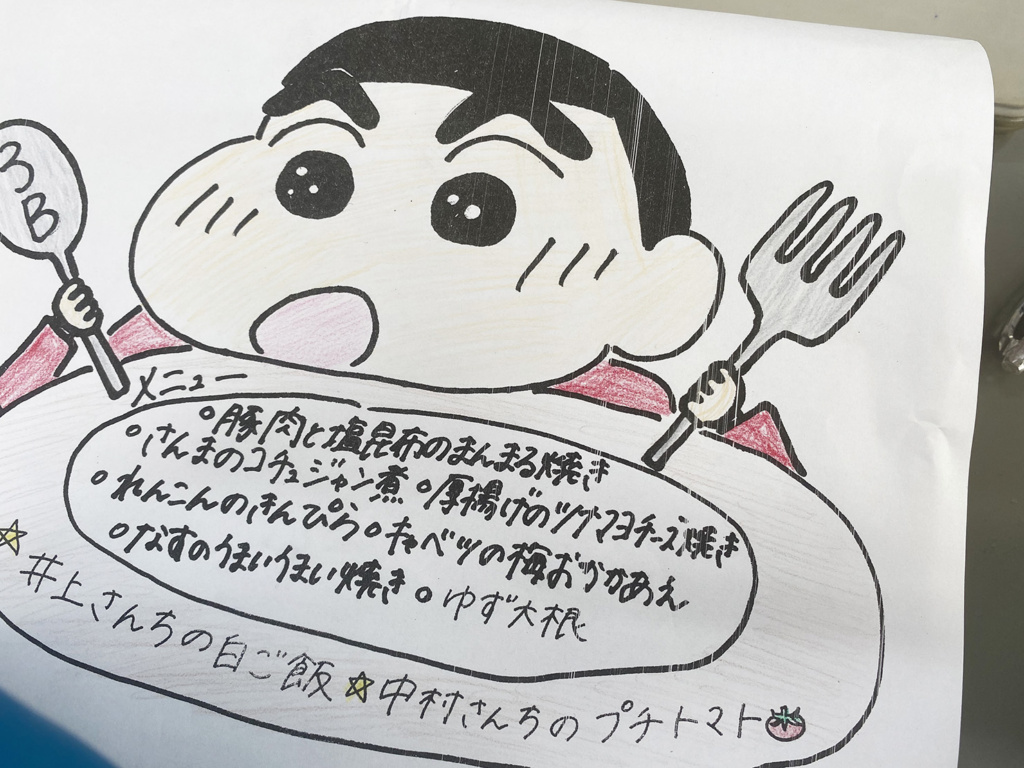 BB
メニュー
°豚肉と塩昆布のまんまる焼き
°さんまのコチュジャン煮 °厚揚げのツナマヨチーズ焼き
°れんこんのきんぴら °キャベツの梅おかかあえ
°なすのうまいうまい焼き °ゆず大根
☆井上さんちの白ご飯☆中村さんちのプチトマト